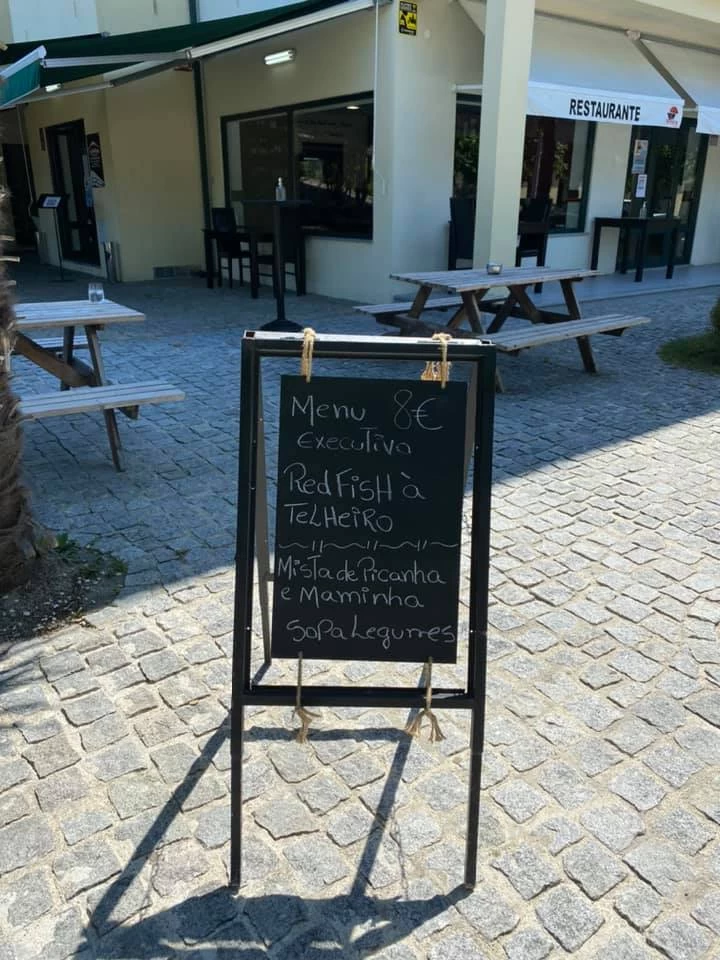 RESTAURANTE
Menu 8€
Executiva
RedFISH à
TELHEIRO
Mista de Picanha
e Maminha
Sopa Legumes